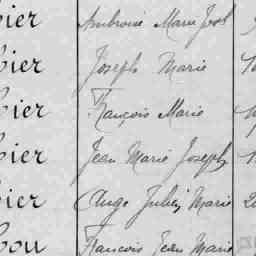 ier Ambroise Marie José
ier Joseph Marie
ier François Marie
ier Jean Marie Joseph
ier Ange Julien Marie
bou François Jean Marie